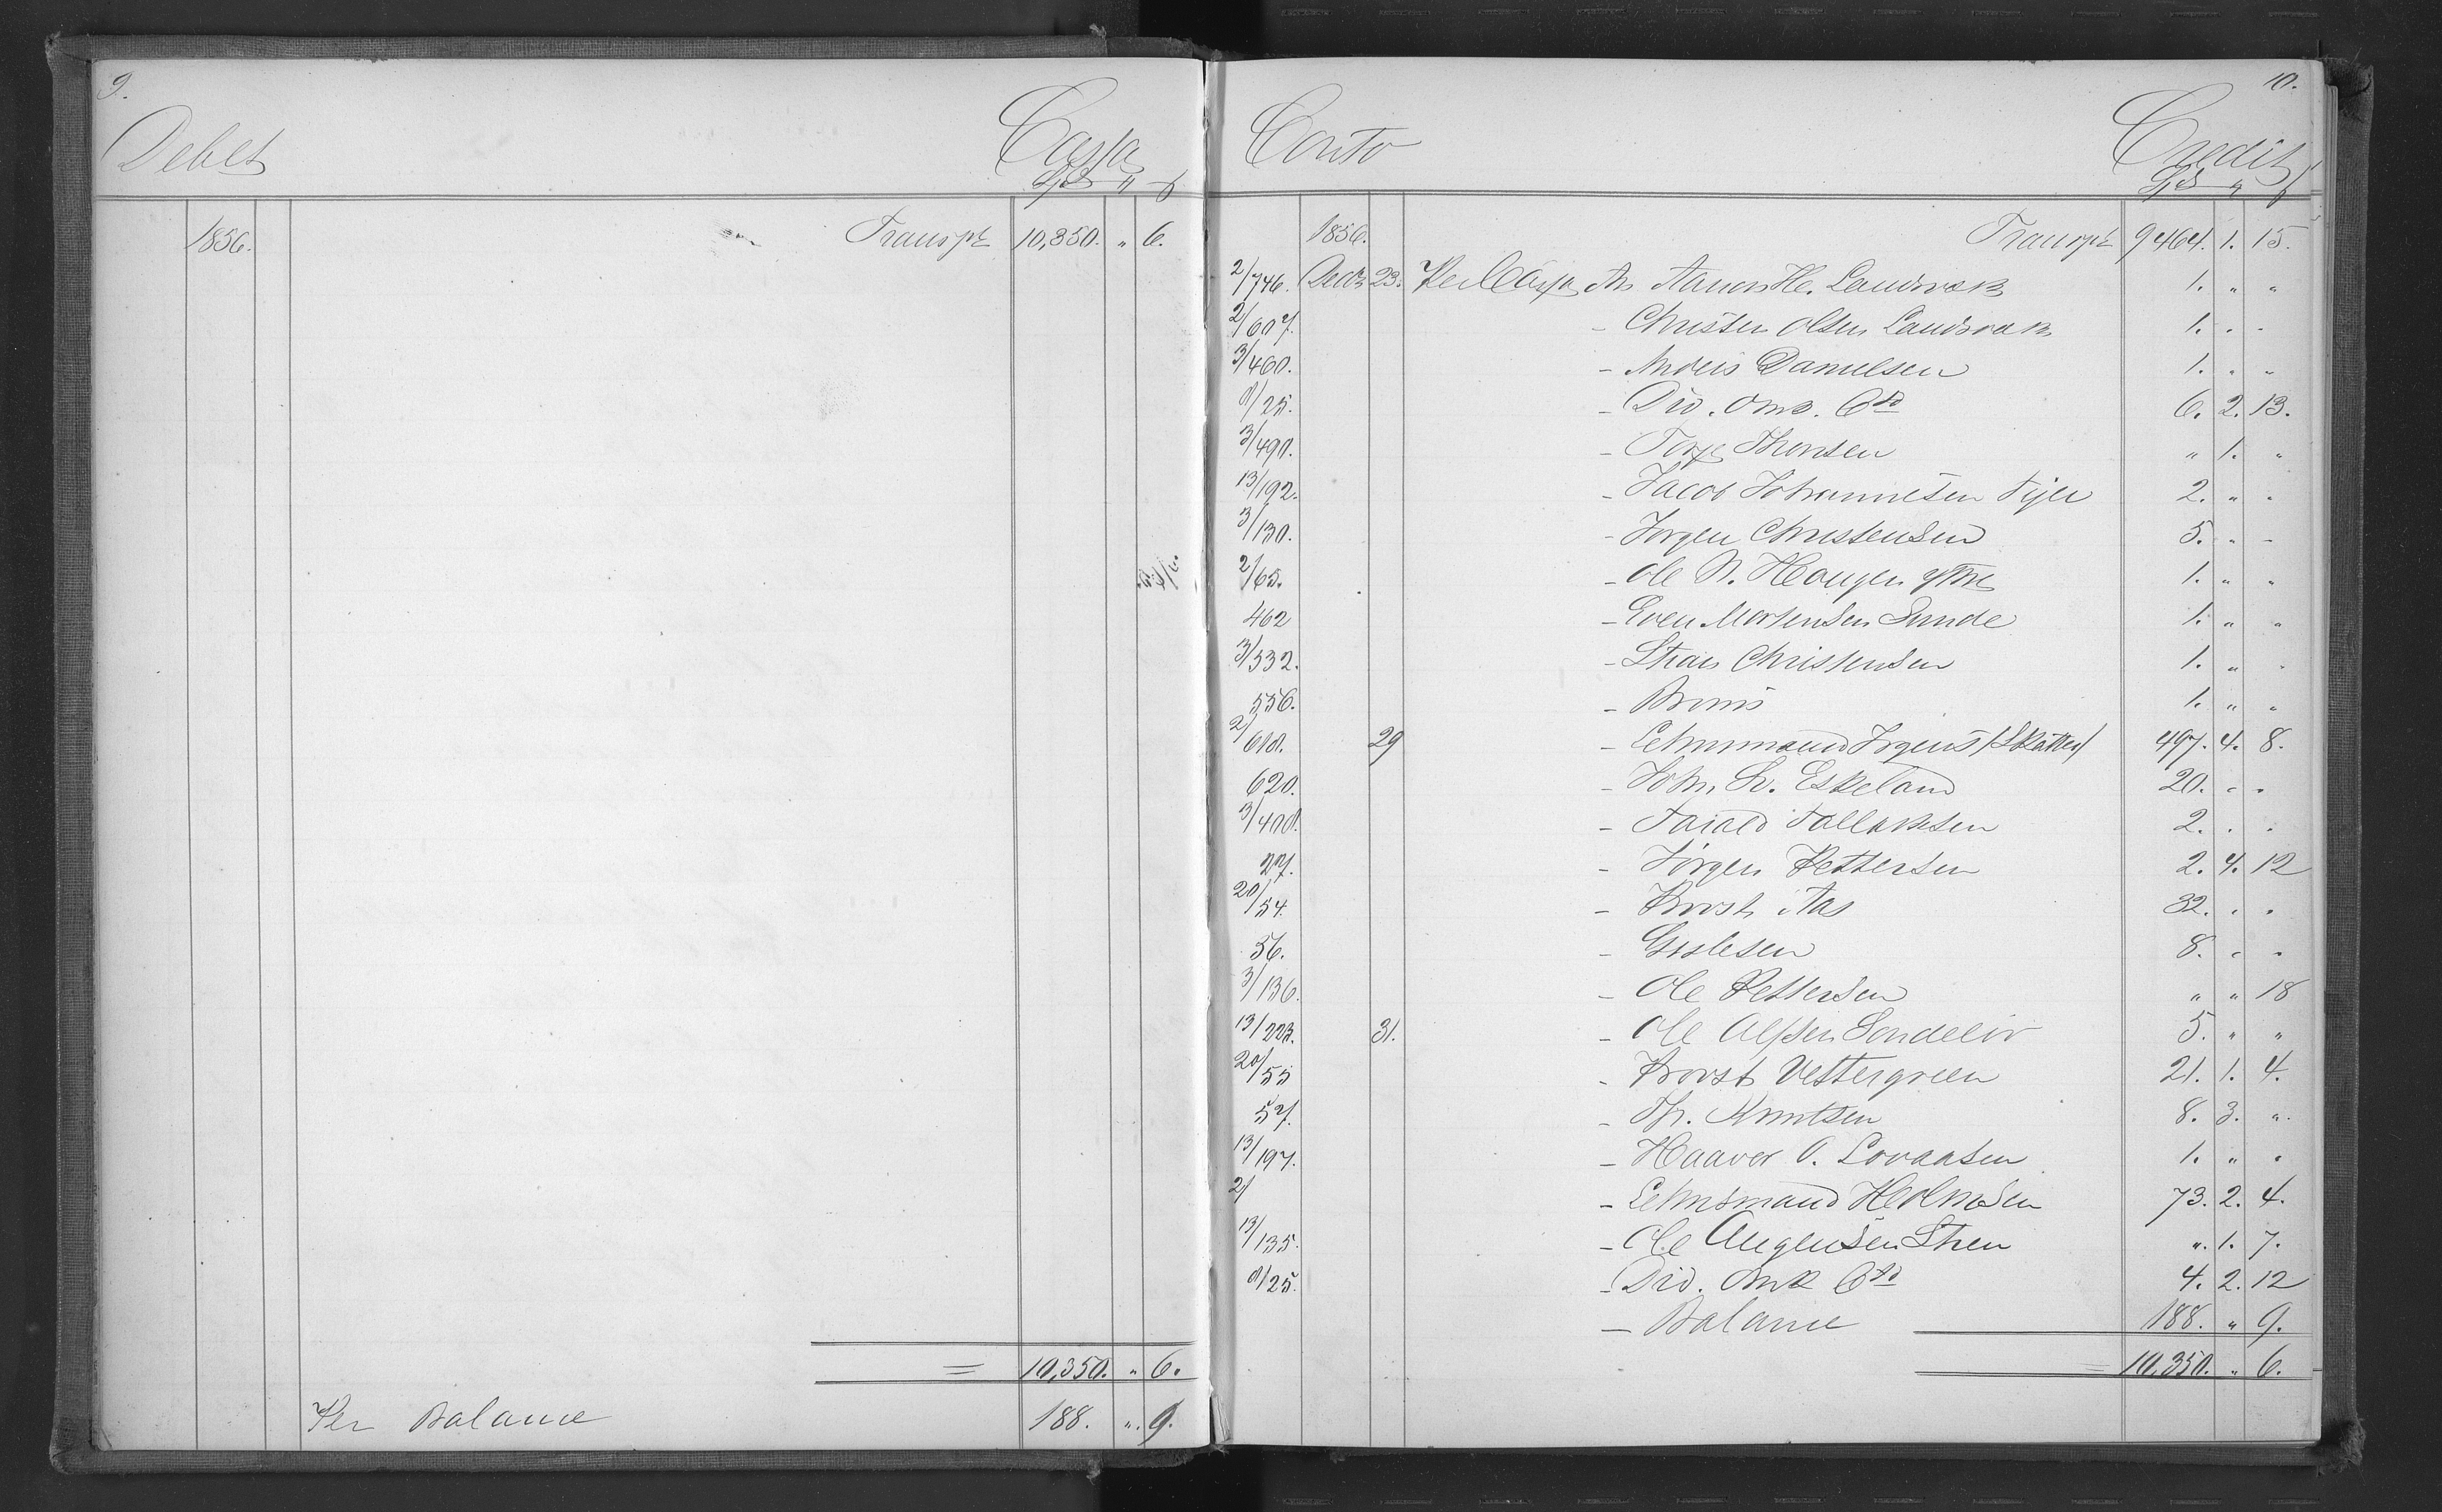 9.
Debet Cassa
Spd " ß
1856. Transpt 10,350. " 6.
= 10,350. " 6.
Per Balance 188. " 9.
10.
Conto Credit
Spd " ß
1856. Transpt 9464. 1. 15.
2/746. Decbr 23. Per Cassa An Aanon H. Landvæk 1. " "
2/607. - Christen Olsen Landvæk 1. " "
3/460. - Anders Danielsen 1. " "
8/25. - Div. Omk. Cto 6. 2. 13.
3/490. - Terje Thorsen " 1. "
13/192. - Jacob Johannesen Fijer 2. " "
3/130. - Jørgen Christensen 5. " "
2/65. - Ole N. Hougen 1. " "
462 - Even Mortensen Sunde 1. " "
3/532. - Christensen 1. " "
556. - 1. " "
2/618. 29 - Lehnsmand Irgens /Skatter/ 497. 4. 8.
620. - John Sv. Eskeland 20. " "
3/408. - Tarald Tallaksen 2. " "
27. - Jørgen Pettersen 2. 4. 12
20/54. - Provst Aas 32. " "
56. - Gislesen 8. " "
3/136. - Ole Pettersen " " 18
13/223. 31. - Ole Alfsen Sondelöv 5. " "
20/55 - Provst Vettergreen 21. 1. 4.
57. - Th. Knutsen 8. 3. "
13/197. - Haaver O. Lovaasen 1. " "
2/ - Lehnsmand Holmsen 73. 2. 4.
13/135. - Ole Steen " 1. 7.
8/25. - Div. Omk Cto 4. 2. 12
- Balance 188. " 9.
= 10,350. " 6.